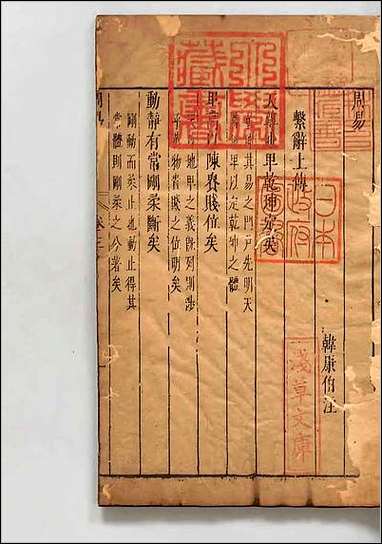 周易
繫辭上傳
韓康伯注
天尊地卑乾坤定矣
其易之門戶先明天
卑以定乾坤之體
卑高以陳貴賤位矣
天尊地卑之義既列則涉
乎萬物貴賤之位明矣
動靜有常剛柔斷矣
剛動而柔止也動止得其
常體則剛柔之分著矣
日本
政府
圖書
淺草文庫